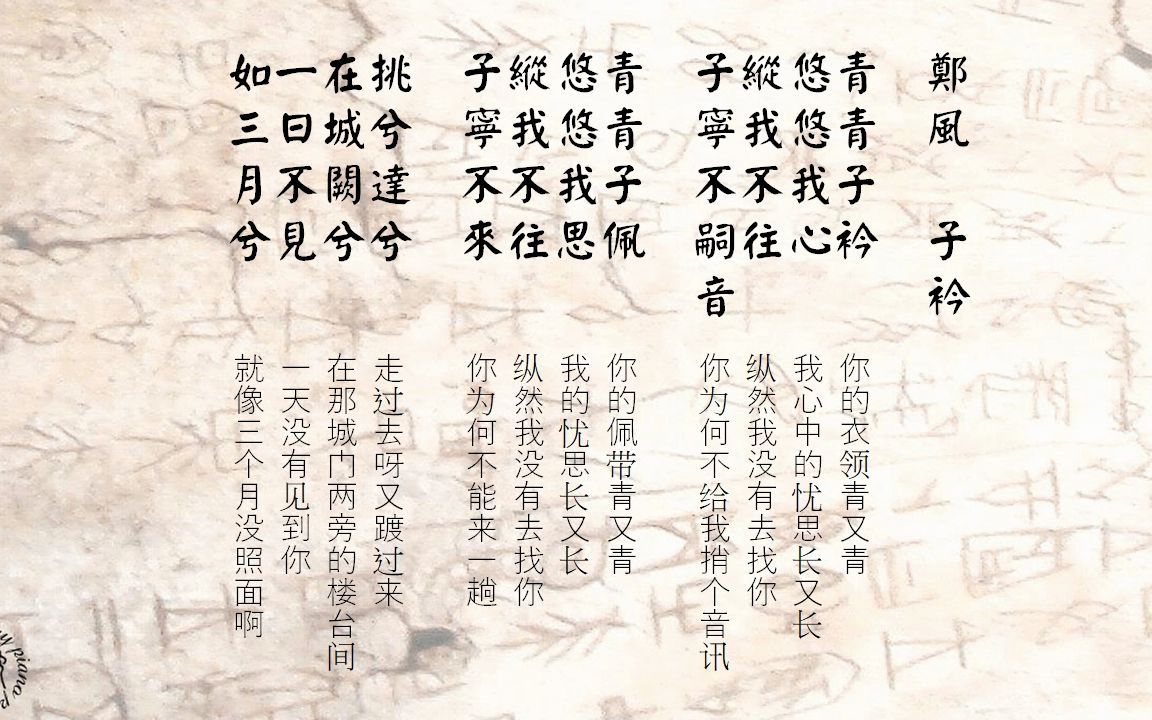 鄭風 子衿
青青子衿
悠悠我心
縱我不往
子寧不嗣音
青青子佩
悠悠我思
縱我不往
子寧不來
挑兮達兮
在城闕兮
一日不見
如三月兮
你的衣领青又青
我心中的忧思长又长
纵然我没有去找你
你为何不给我捎个音讯
你的佩带青又青
我的忧思长又长
纵然我没有去找你
你为何不能来一趟
走过去呀又踱过来
在那城门两旁的楼台间
一天没有见到你
就像三个月没照面啊
piano